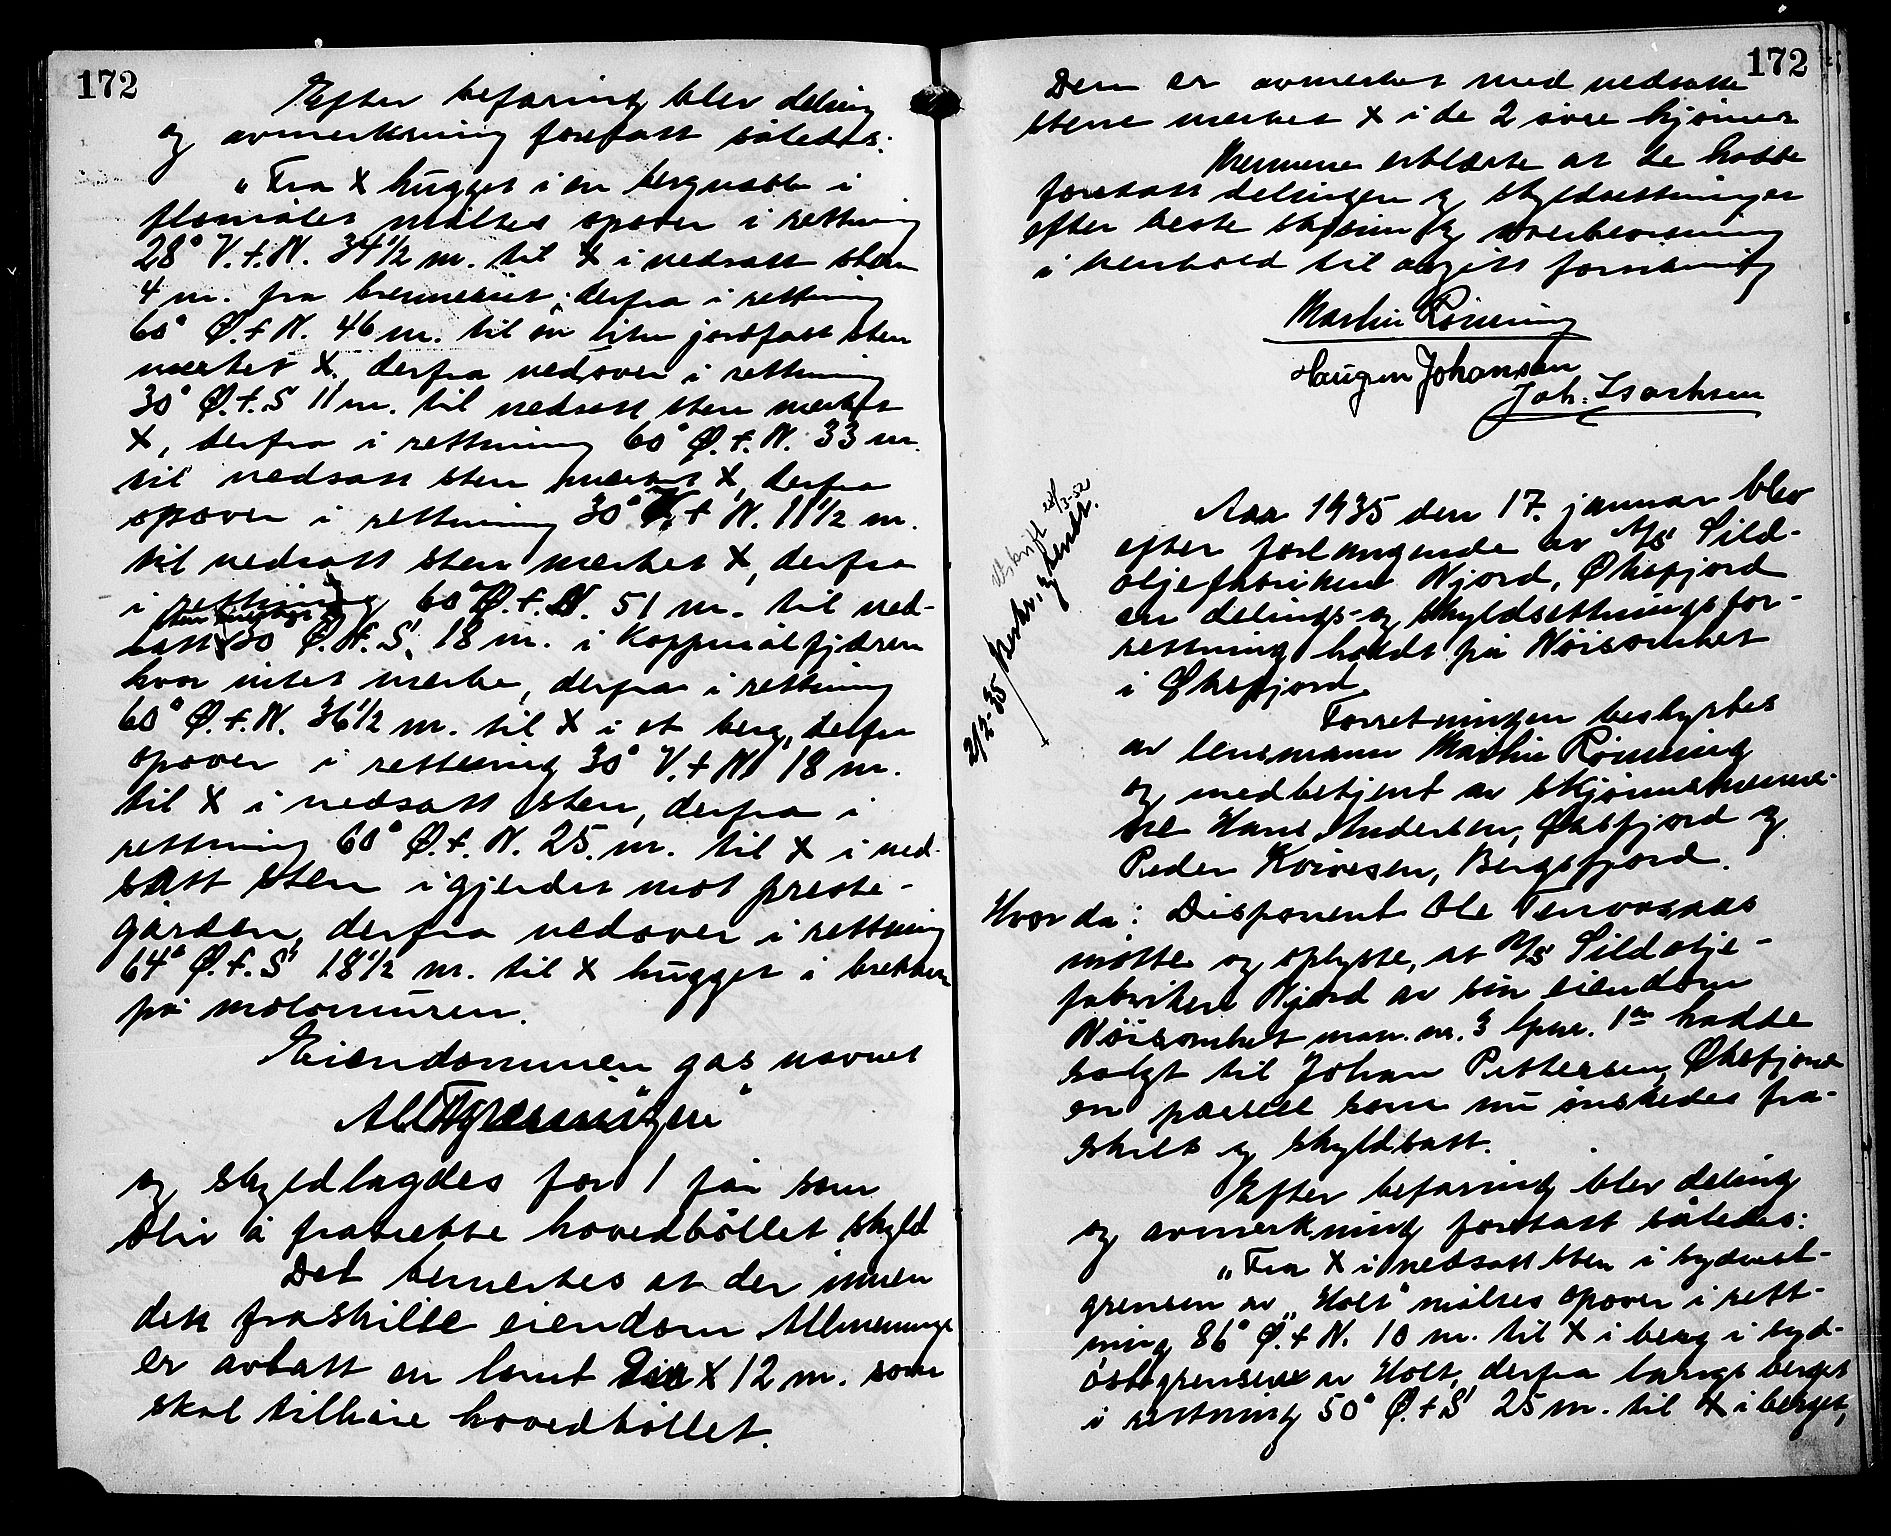 172
Efter befaring blev deling
og avmerkning foretatt således:
"Fra X hugget i en bergnabbe i
flomålet måltes opover i rettning
28° V.f.N. 34½ m. til X i nedsatt sten
4 m. fra derfra i rettning
60° Ø.f.N. 46 m. til en liten jordfast sten
merket X, derfra nedover i rettning
30° Ø.f.S 11 m. til nedsatt sten merket
X, derfra i rettning 60° Ø.f.N. 33 m.
til nedsatt sten merket X, derfra
opover i rettning 30° V.f.N. 11½ m.
til nedsatt sten merket X, derfra
i rettning 60° Ø.f.N. 51 m. til ned-
satt sten 30 Ø.f.S. 18 m. i Koppmålfjæren
hvor intet merke, derfra i rettning
60° Ø.f.N. 36½ m. til X i et berg, derfra
opover i rettning 30° V.f.N. 18 m.
til X i nedsatt sten, derfra i
rettning 60° Ø.f.N. 25. m. til X i ned-
satt sten i gjerdet mot preste-
gården, derfra nedover i rettning
64° Ø.f.S 18½ m. til X hugget i brekken
på molomuren.
Eiendommen gas navnet
og skyldlagdes for 1 for som
blir å fratrekke hovedbøllet skyld
Det bemerkes at der innen
den fraskilte eiendom
er avsatt en tomt X 12 m. som
skal tilhøre hovedbøllet.
172
Den er avmerket med nedsatte
stene merket X i de 2 øvre hjørner
Mennene erklærte at de hadde
foretatt delingen og skyldsettningen
efter beste skjønn og overbevisning
i henhold til avgitt forsikring
Martin Rønning
Haugen Johansen
Joh. Isachsen
Utskrift 24/3-52
2/2-35 Utskr. og sendt.
Aar 1935 den 17. januar blev
efter forlangende av A/S Sild-
oljefabriken Njord, Øksfjord
en delings- og skyldsettningsfor-
rettning holdt på Nøisomhet
i Øksfjord.
Forretningen bestyrtes
av lensmann Martin Rønning
og medbetjent av skjønsmenne-
ne Hans Andersen, Øksfjord og
Peder Koivesen, Bergsfjord.
Hvorda: Disponent Ole
møtte og oplyste, at A/S Sildolje-
fabriken Njord av sin eiendom
Nøisomhet matr. nr. 3 lpnr. 1 hadde
solgt til Johan Pettersen, Øksfjord
en parsell som nu ønskedes fra-
skilt og skyldsatt.
Efter befaring blev deling
og avmerkning foretatt således:
"Fra X i nedsatt sten i sydvest-
grensen av "Holt" måltes opover i rett-
ning 86° Ø.f.N. 10 m. til X i berg i syd-
østegrensen av Holt, derfra langs berget
i rettning 50° Ø.f.S 25 m. til X i berget,